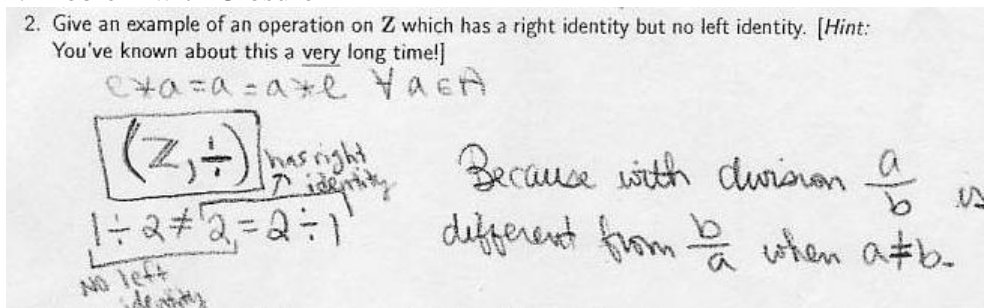 2. Give an example of an operation on Z which has a right identity but no left identity. [Hint:
You've known about this a very long time!]
e*a=a=a*e ∀a∈A
(Z,÷) has right
↑ identity
1÷2≠2=2÷1
No left
identity
Because with division a/b is
different from b/a when a≠b.